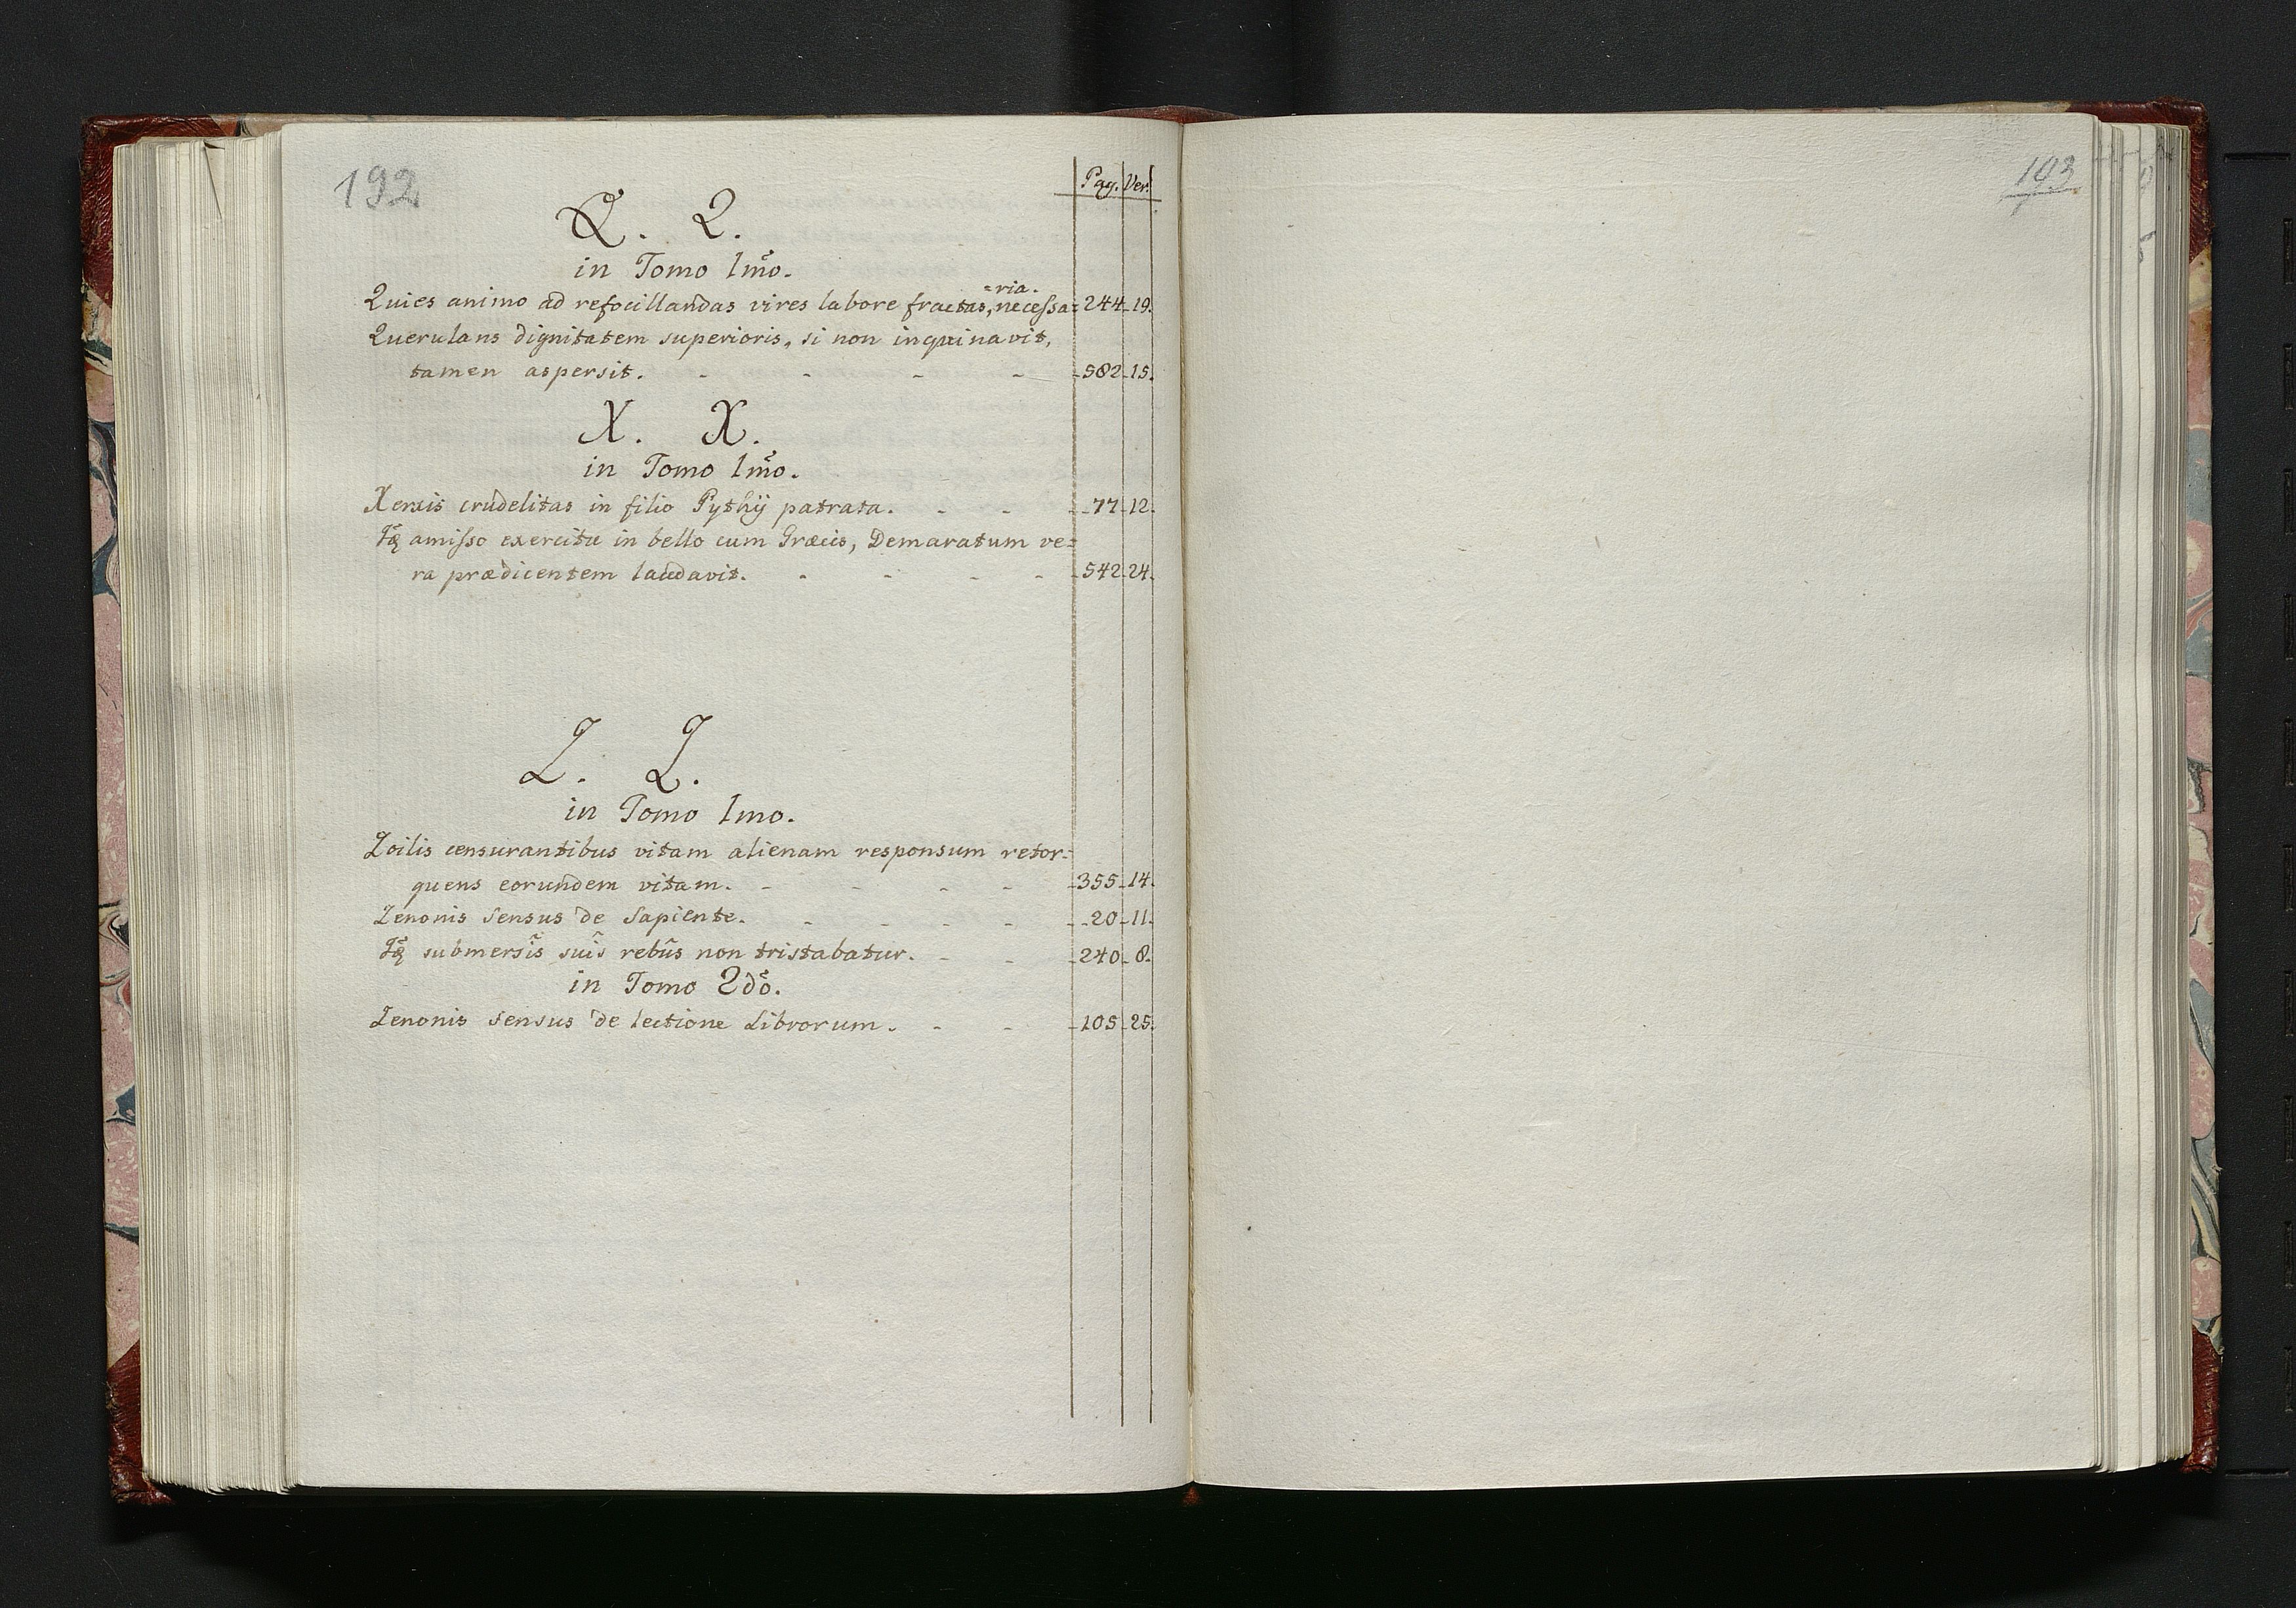 192
Pag. Ver.
Q. Q.
in Tomo 1mo.
=ria.
Quies animo ad refocillandas vires labore fractas, necessa= 244 19.
Querulans dignitatem superioris, si non inquinavit,
tamen aspersit. - - - - 582 15.
X. X.
in Tomo 1mo.
Xerxis crudelitas in filio Pythij patrata. - - 77 12.
amisso exercitu in bello cum Græcis, Demaratum ve=
ra prædicentem laudavit. - - - - 542 24.
Z. Z.
in Tomo 1mo.
Zoilis censurantibus vitam alienam responsum retor=
quens eorundem vitam. - - - - 355 14.
Zenonis sensus de Sapiente. - - - - 20 11.
submersis suis rebus non tristabatur. - - 240 8.
in Tomo 2do.
Zenonis sensus de lectione Librorum. - - 105 25.
193